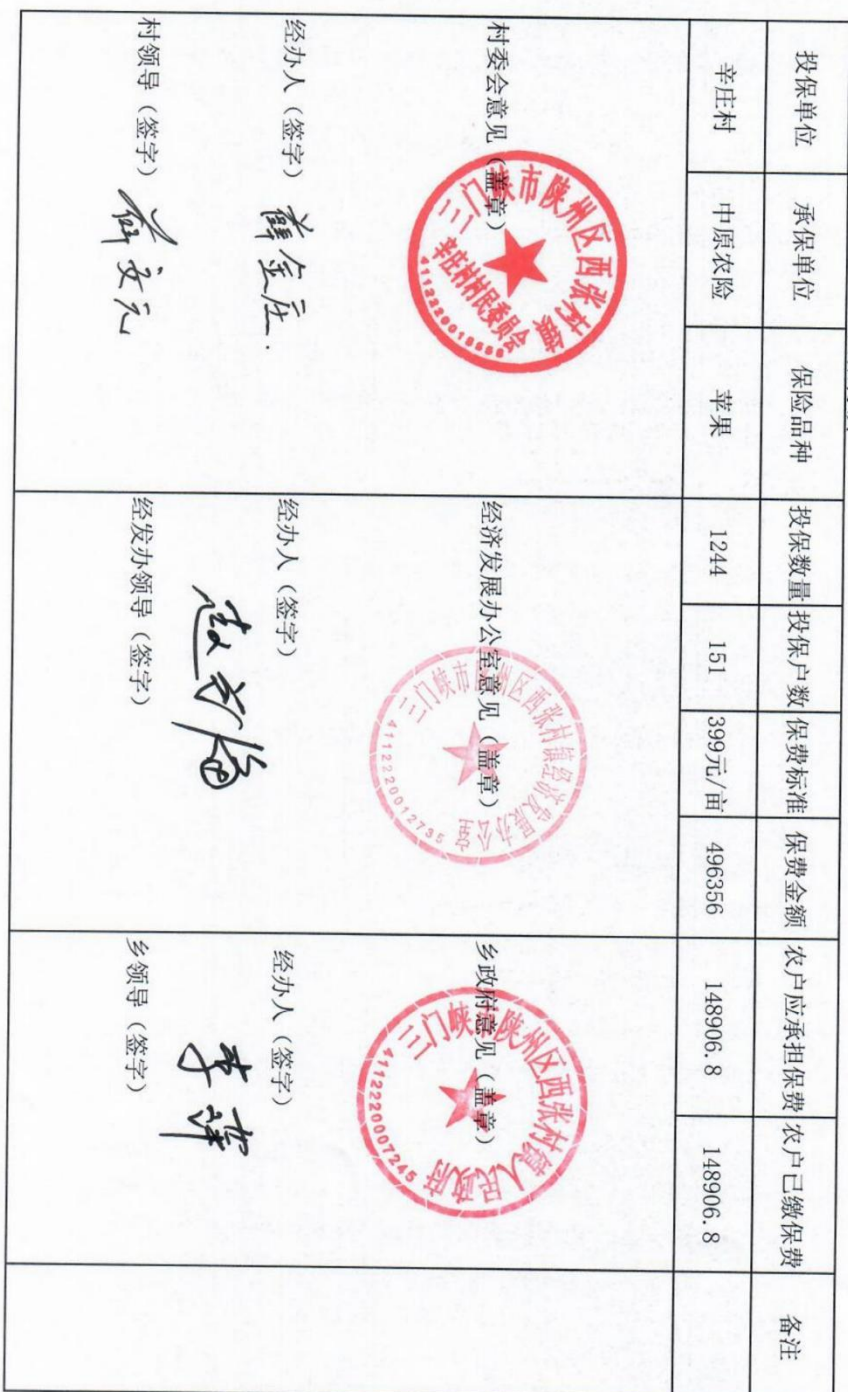 投保单位 承保单位 保险品种 投保数量 投保户数 保费标准 保费金额 农户应承担保费 农户已缴保费 备注
辛庄村 中原农险 苹果 1244 151 399元/亩 496356 148906.8 148906.8
村委会意见（盖章）
三门峡市陕州区西张村镇
辛庄村村民委员会
经办人（签字）
薛金庄
村领导（签字）
经济发展办公室意见（盖章）
三门峡市陕州区西张村镇经济发展办公室
4112220012735
经办人（签字）
经发办领导（签字）
乡政府意见（盖章）
三门峡市陕州区西张村镇人民政府
4112220007245
经办人（签字）
乡领导（签字）